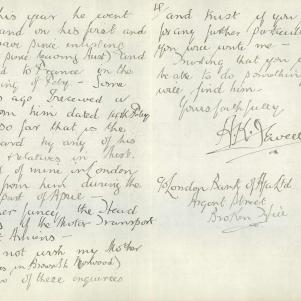 his year he went
and on his first and
leave since enlisting
since leaving Aust) and
to France on the
of Feby - Some
ago I received a
from him dated 14th Feby
so far that is the
heard by any of his
relatives in Aust.
of mine in London
from him during the
part of April -
the Head
of the Motor Transport
at Amiens -
not wish my Mother
in Norwood)
of these enquiries
and trust if you
for any further particulars
you will write me -
Trusting that you
be able to do something
will find him.
Yours faithfully
c/o London Bank of A/sia Ltd
Argent Street
Broken Hill